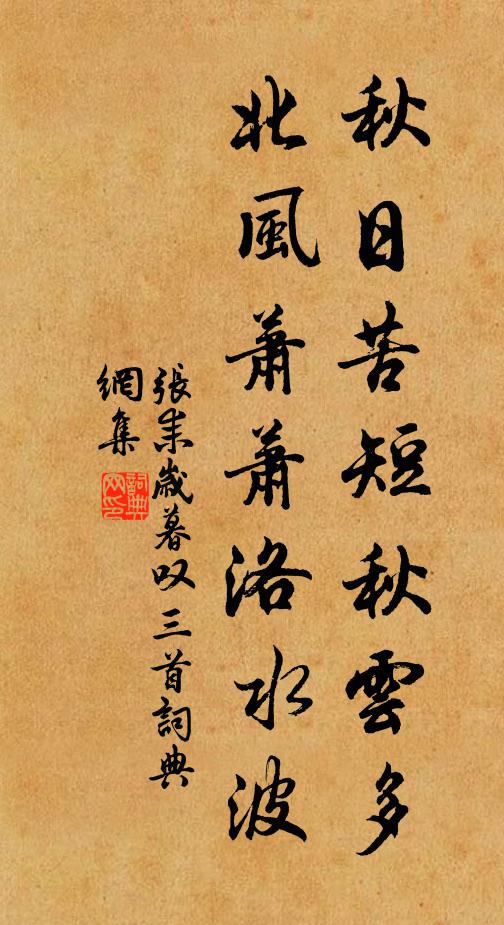 秋日苦短秋雲多
北風蕭蕭洛水波
張耒歲暮叹三首詞典
網集
詞典網印